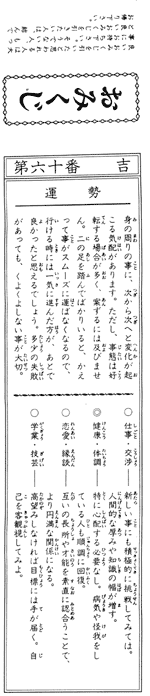 良いおみくじを引いた人は大
事にお持ち下さい。
と思われる人は、結んで
お帰り下さい。
おみくじ
第六十番 吉
運勢
身の周りの事に、次から次へと変化が起
こる気配があります。ただし、事態は好
転する場合が多く、案ずるには及びませ
ん。二の足を踏んでばかりいると、かえ
って事がスムーズに運ばなくなるので、
行ける時には一気に進んだ方が、あとで
良かったと思えるでしょう。多少の失敗
があっても、くよくよしない事が大切。
○仕事・交渉 新しい事にも積極的に挑戦してみては。
人間的な厚みや知識の幅が増す。
◎健康・体調 特に心配する必要なし。病気や怪我をし
ている人も順調に回復。
○恋愛・縁談 互いの長所や才能を素直に認合うことで、
より円満な関係になる。
○学業・技芸 高望みしなければ目標には手が届く。自
己を客観視してみよ。